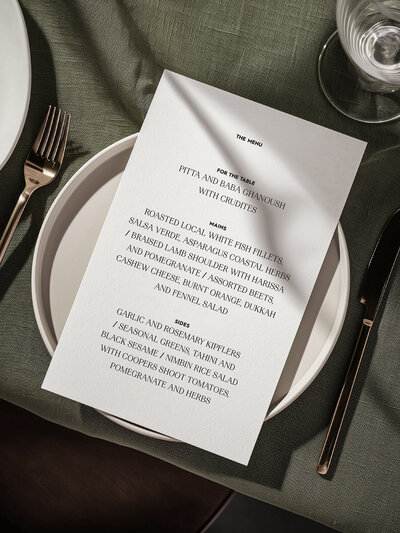 THE MENU
FOR THE TABLE
PITTA AND BABA GHANOUSH
WITH CRUDITES
MAINS
ROASTED LOCAL WHITE FISH FILLETS,
SALSA VERDE, ASPARAGUS COASTAL HERBS
/ BRAISED LAMB SHOULDER WITH HARISSA
AND POMEGRANATE / ASSORTED BEETS,
CASHEW CHEESE, BURNT ORANGE, DUKKAH
AND FENNEL SALAD
SIDES
GARLIC AND ROSEMARY KIPFLERS
/ SEASONAL GREENS, TAHINI AND
BLACK SESAME / NIMBIN RICE SALAD
WITH COOPERS SHOOT TOMATOES,
POMEGRANATE AND HERBS